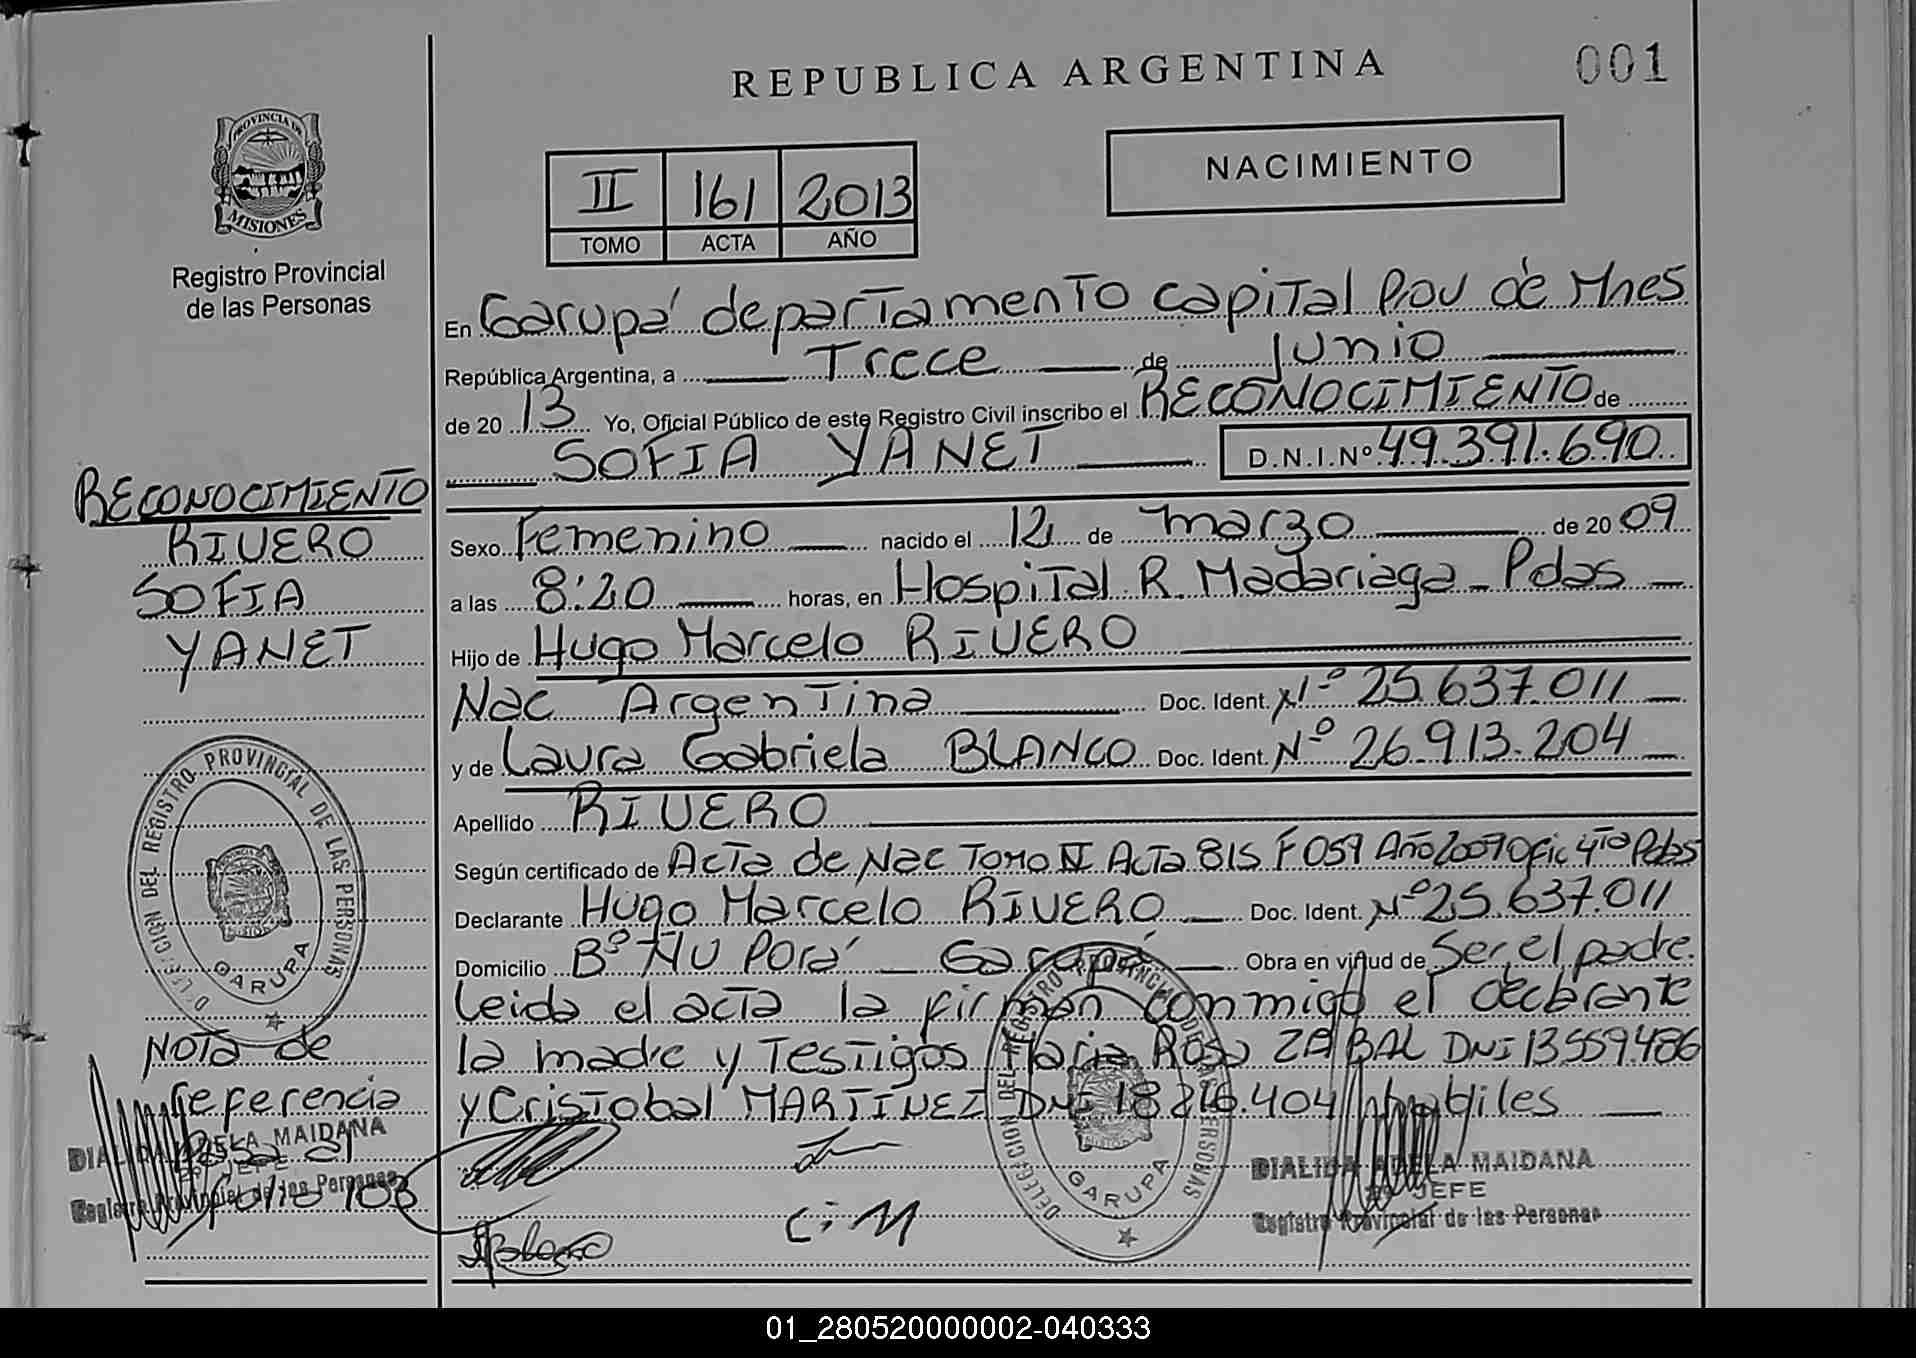 REPUBLICA ARGENTINA
001
PROVINCIA DE
MISIONES
Registro Provincial
de las Personas
NACIMIENTO
II 161 2013
TOMO ACTA AÑO
En Garupá departamento capital Prov de Mnes
República Argentina, a Trece de junio
de 20 13 Yo, Oficial Público de este Registro Civil inscribo el RECONOCIMIENTO de
SOFIA YANET D.N.I.Nº 49.391.690
Sexo Femenino nacido el 12 de marzo de 20 09
a las 8:20 horas, en Hospital R. Madariaga - Pdas
Hijo de Hugo Marcelo RIVERO
Nac Argentina Doc. Ident. Nº 25.637.011
y de Laura Gabriela BLANCO Doc. Ident. Nº 26.913.204
Apellido RIVERO
Según certificado de Acta de Nac Tomo Acta 815 F 059 Año Ofic 4ta Pdas
Declarante Hugo Marcelo RIVERO Doc. Ident. Nº 25.637.011
Domicilio Bº ÑU Porá - Garupá Obra en virtud de Ser el padre.
Leida el acta la firman conmigo el declarante
la madre y Testigos Maria Rosa ZABAL DNI 13559.486
y Cristobal MARTINEZ DNI 18216.404 habiles
RECONOCIMIENTO
RIVERO
SOFIA
YANET
DELEGACION DEL REGISTRO PROVINCIAL DE LAS PERSONAS
GARUPA
Nota de
referencia
Pasa al
folio 108
DIALIDA ADELA MAIDANA
JEFE
Registro Provincial de las Personas
C.M
DELEGACION DEL REGISTRO PROVINCIAL DE LAS PERSONAS
GARUPA
DIALIDA ADELA MAIDANA
JEFE
Registro Provincial de las Personas
01_280520000002-040333